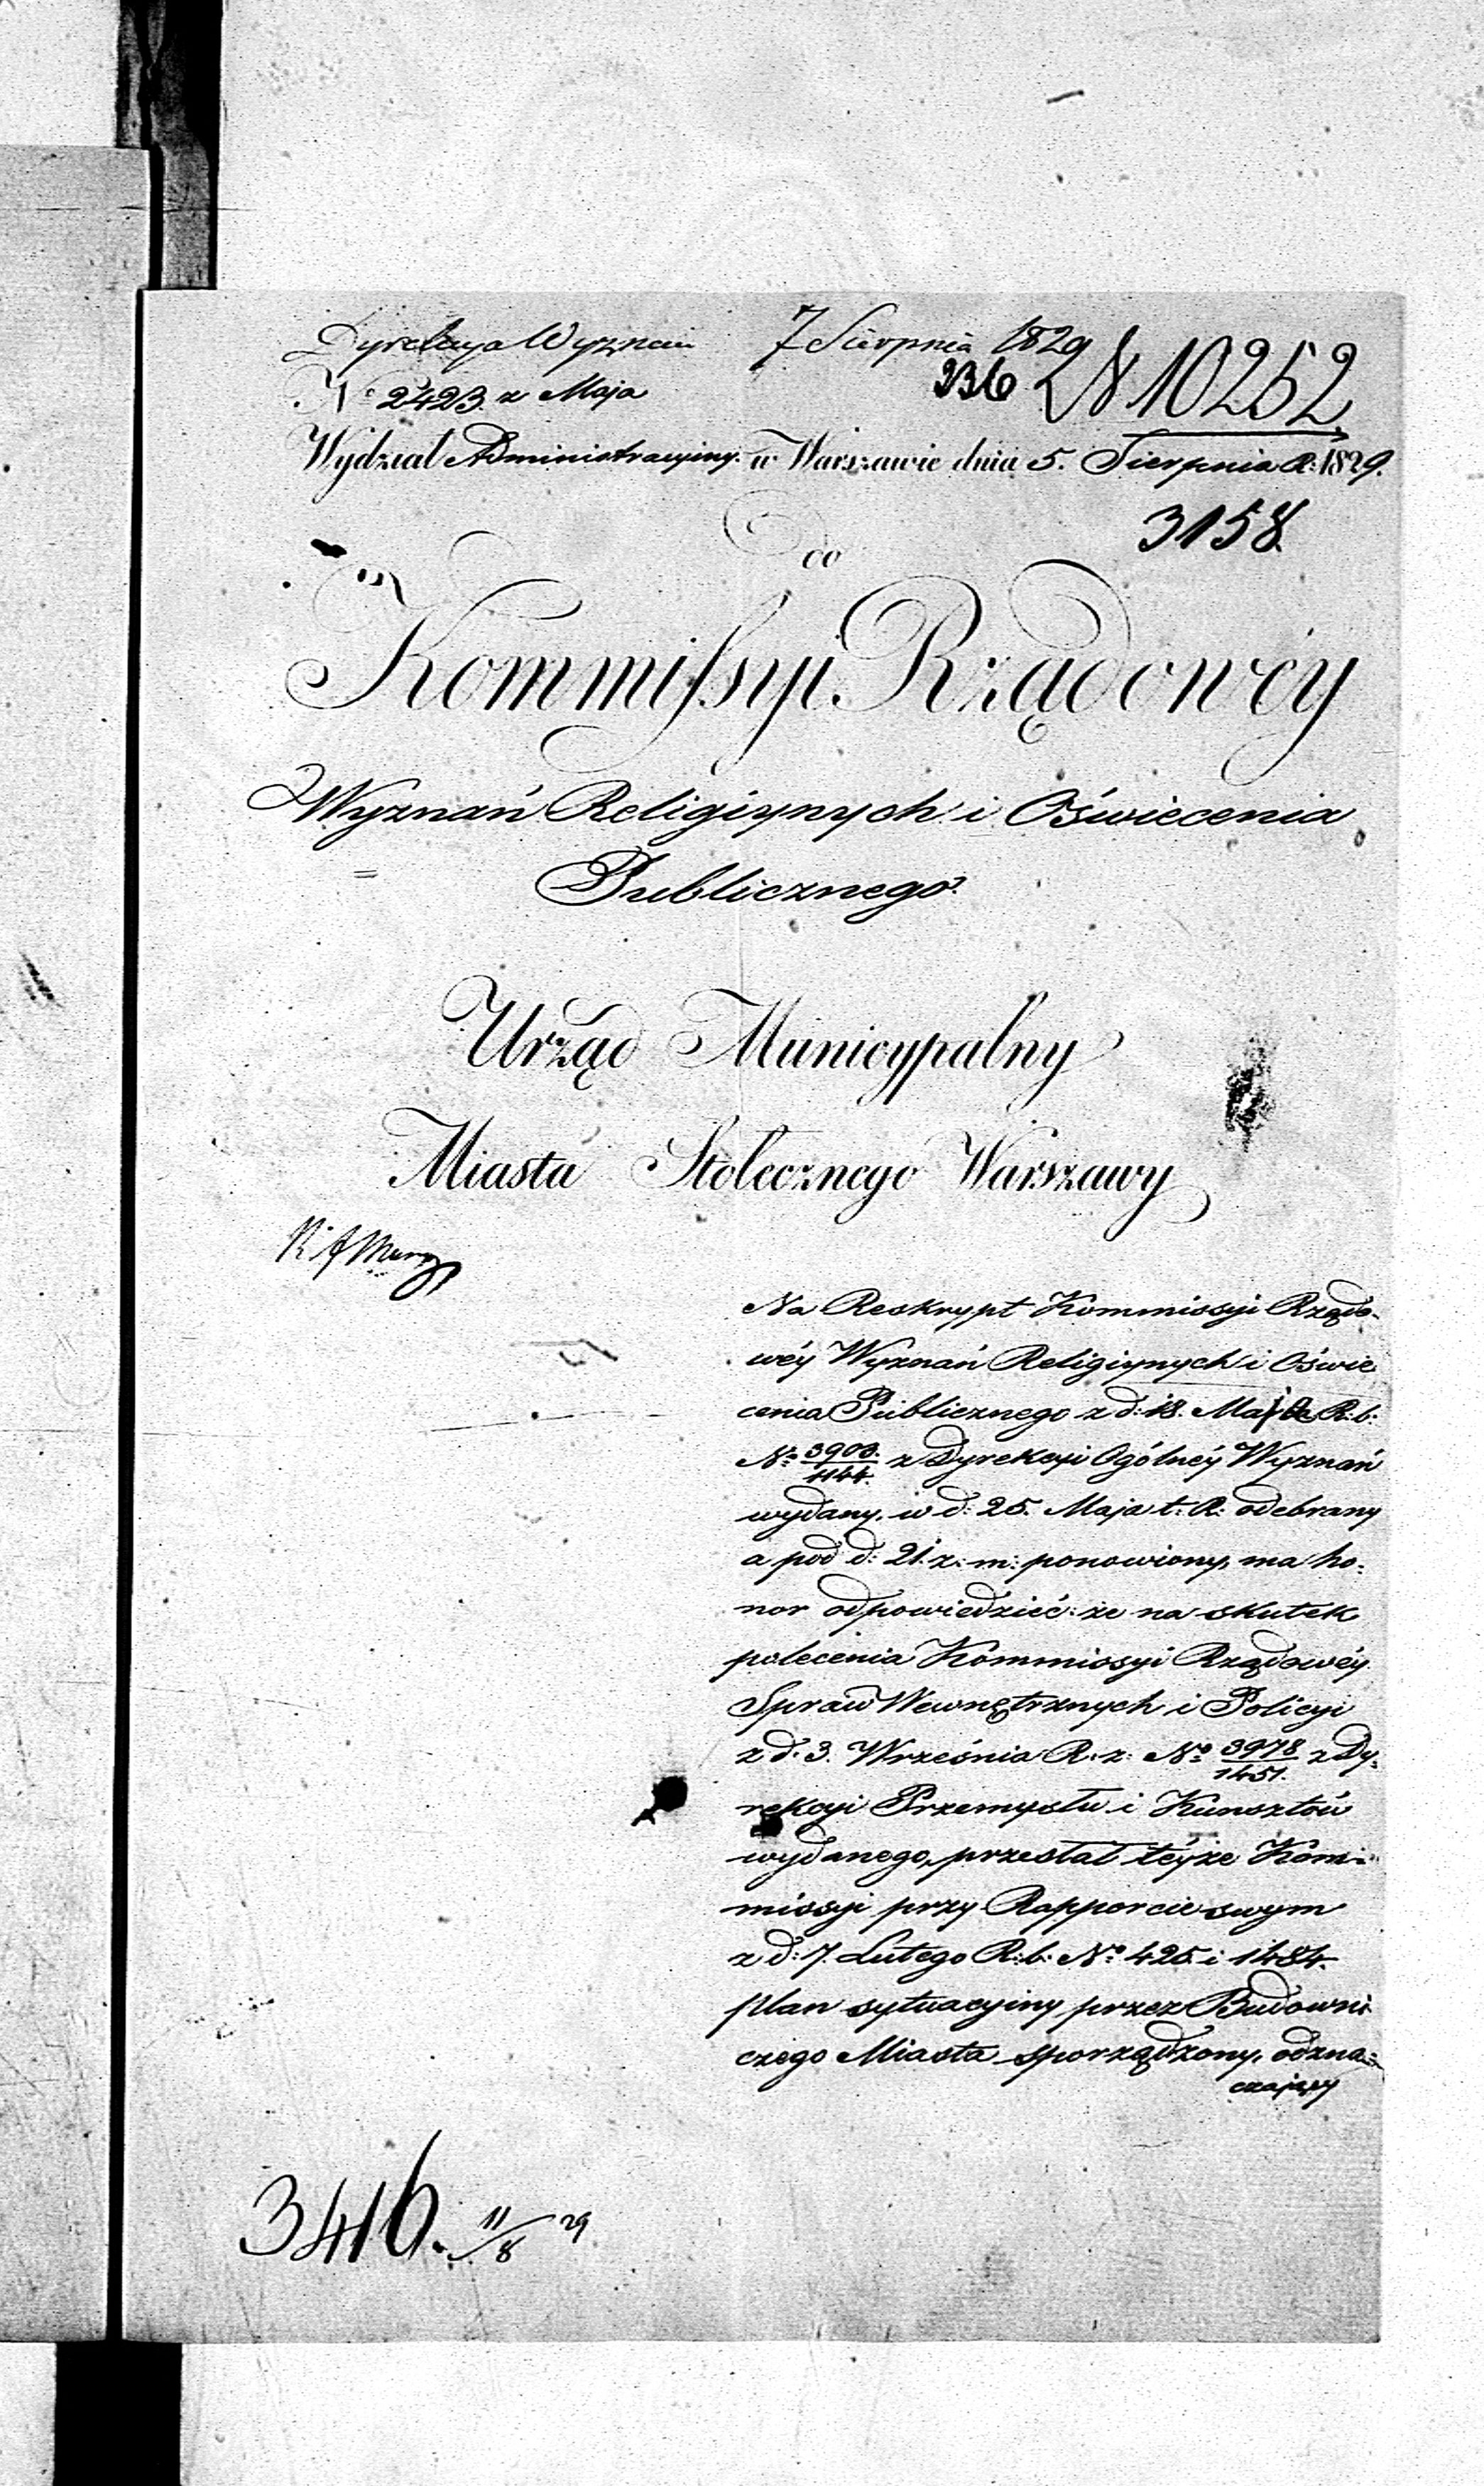 Dyrekcya Wyznań 7 Sierpnia 1829
236 10252
No 2423. z Maja
Wydział Administracyiny. w Warszawie dnia 5. Sierpnia R: 1829.
3158.
Do
Kommissyi Rządowéy
Wyznań Religiynych i Oświecenia
Publicznego.
Urząd Municypalny
Miasta Stołecznego Warszawy
Na Reskrypt Kommissyi Rządo-
wéy Wyznań Religiynych i Oświe
cenia Publicznego z d: 18. Maja R: b:
No 3903./1144. z Dyrekcyi Ogólnéy Wyznań
wydany, w d: 25. Maja t: R: odebrany
a pod d: 21. z: m: ponowiony, ma ho-
nor odpowiedzieć: że na skutek
polecenia Kommissyi Rządowéy
Spraw Wewnętrznych i Policyi
z d: 3. Września R: z: No 3978/1451. z Dy-
rekcyi Przemysłu i Kunsztów
wydanego, przesłał téyże Kom-
missyi przy Rapporcie swym
z d: 7. Lutego R: b: No 425 i 1484.
plan sytuacyiny przez Budowni
czego Miasta sporządzony, odzna-
czający
3416. 11/8 29